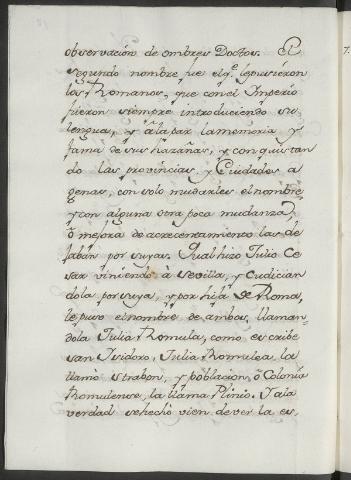 observación de ombres Doctos. El
segundo nombre fue el q.e le pusieron
los Romanos, que con el Imperio
fueron siempre introduciendo su
lengua, y a la par la memoria y
fama de sus hazañas, y conquistan
do las provincias, y Ciudades a
genas, con solo mudarles el nombre,
y con alguna otra poca mudanza,
ó mejora de acrecentamiento las de
jaban por suyas. Qual hizo Julio Ce
sar viniendo à Sevilla, y cudician
dola por suya, y por hija de Roma,
le puso el nombre de ambos, llaman
dola Julia Romula, como escribe
san Isidoro, Julia Romulea, la
llamó strabon, y poblacion, ó Colonia
Romulense, la llama Plinio. Y a la
verdad se hechó vien de ver la es-